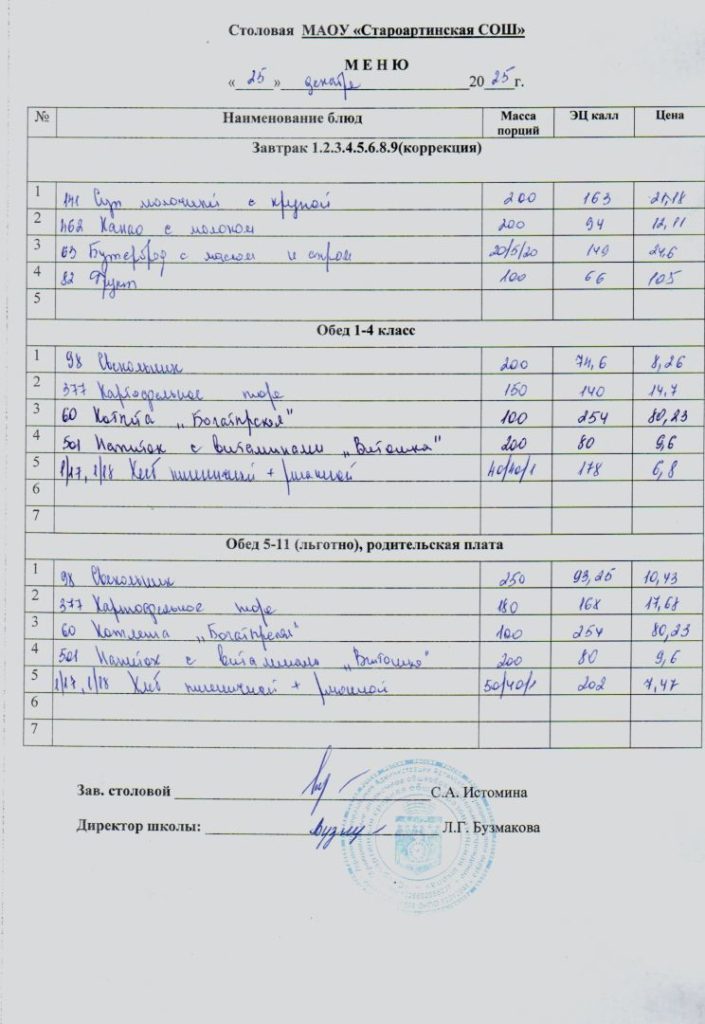 Столовая МАОУ «Староартинская СОШ»
М Е Н Ю
« 25 » декабря 2025 г.
№ Наименование блюд Масса порций ЭЦ калл Цена
Завтрак 1.2.3.4.5.6.8.9(коррекция)
1 141 Суп молочный с крупой 200 163 21,18
2 462 Какао с молоком 200 94 12,11
3 63 Бутерброд с маслом и сыром 20/5/20 149 24,6
4 82 Фрукт 100 66 105
5
Обед 1-4 класс
1 98 Свекольник 200 74,6 8,26
2 377 Картофельное пюре 150 140 14,7
3 60 Котлета „Богатырская" 100 254 80,23
4 501 Напиток с витаминами „Витошка" 200 80 9,6
5 1/17, 1/18 Хлеб пшеничный + ржаной 40/40/1 178 6,8
6
7
Обед 5-11 (льготно), родительская плата
1 98 Свекольник 250 93,25 10,43
2 377 Картофельное пюре 180 168 17,68
3 60 Котлета „Богатырская" 100 254 80,23
4 501 Напиток с витаминами „Витошка" 200 80 9,6
5 1/17, 1/18 Хлеб пшеничной + ржаной 50/40/1 202 7,47
6
7
Зав. столовой С.А. Истомина
Директор школы: Л.Г. Бузмакова